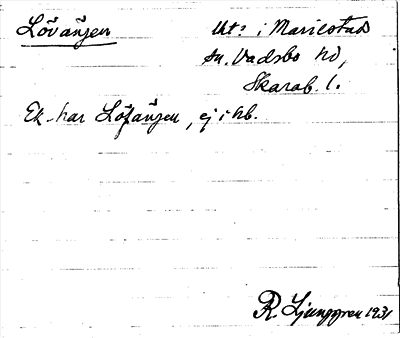 Lövängen Ut: i Mariestad
sn. Vadsbo hd,
Skarab. l.
Ek. har Löfängen, ej i hb.
R. Ljunggren 1931